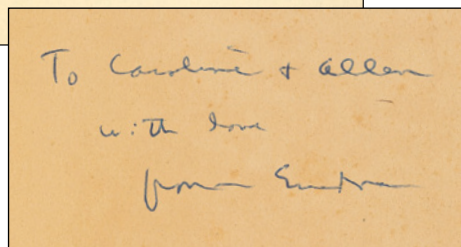 To Caroline + Allen
with love
from